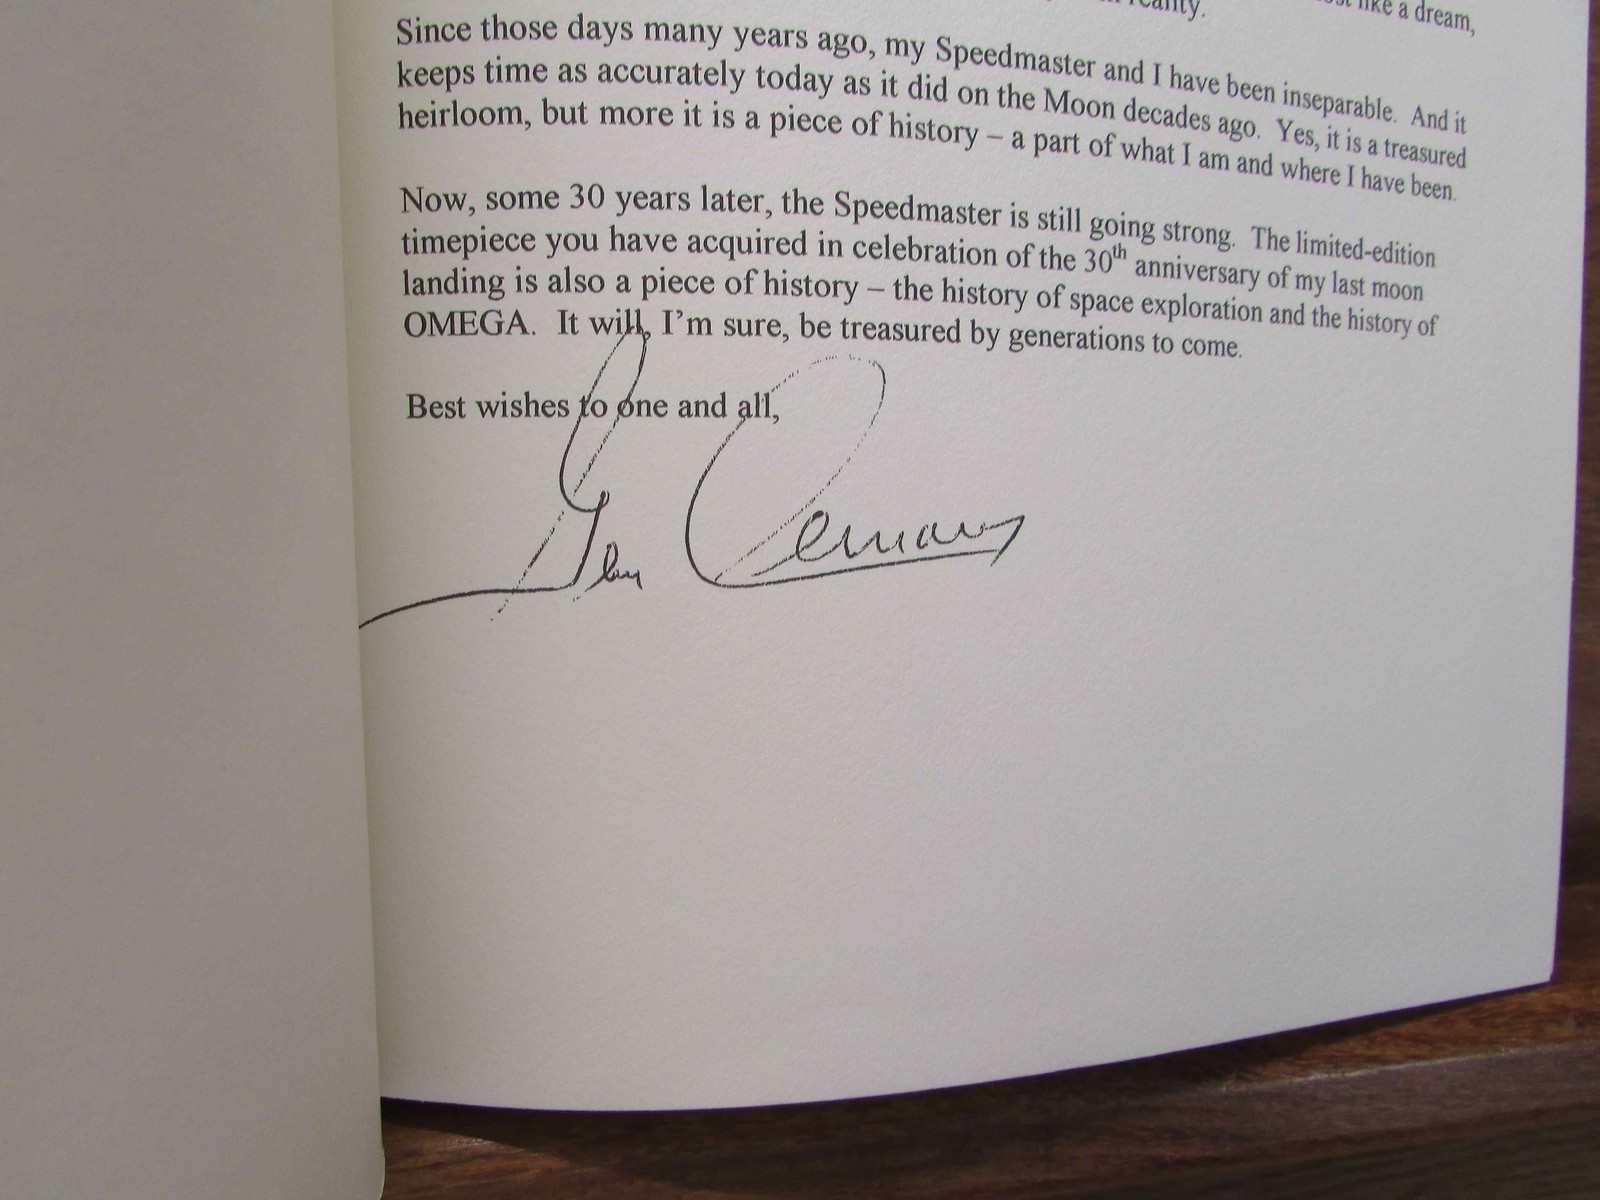 like a dream,
reality.
Since those days many years ago, my Speedmaster and I have been inseparable. And it
keeps time as accurately today as it did on the Moon decades ago. Yes, it is a treasured
heirloom, but more it is a piece of history – a part of what I am and where I have been.
Now, some 30 years later, the Speedmaster is still going strong. The limited-edition
timepiece you have acquired in celebration of the 30th anniversary of my last moon
landing is also a piece of history – the history of space exploration and the history of
OMEGA. It will, I'm sure, be treasured by generations to come.
Best wishes to one and all,
Gen Cernan